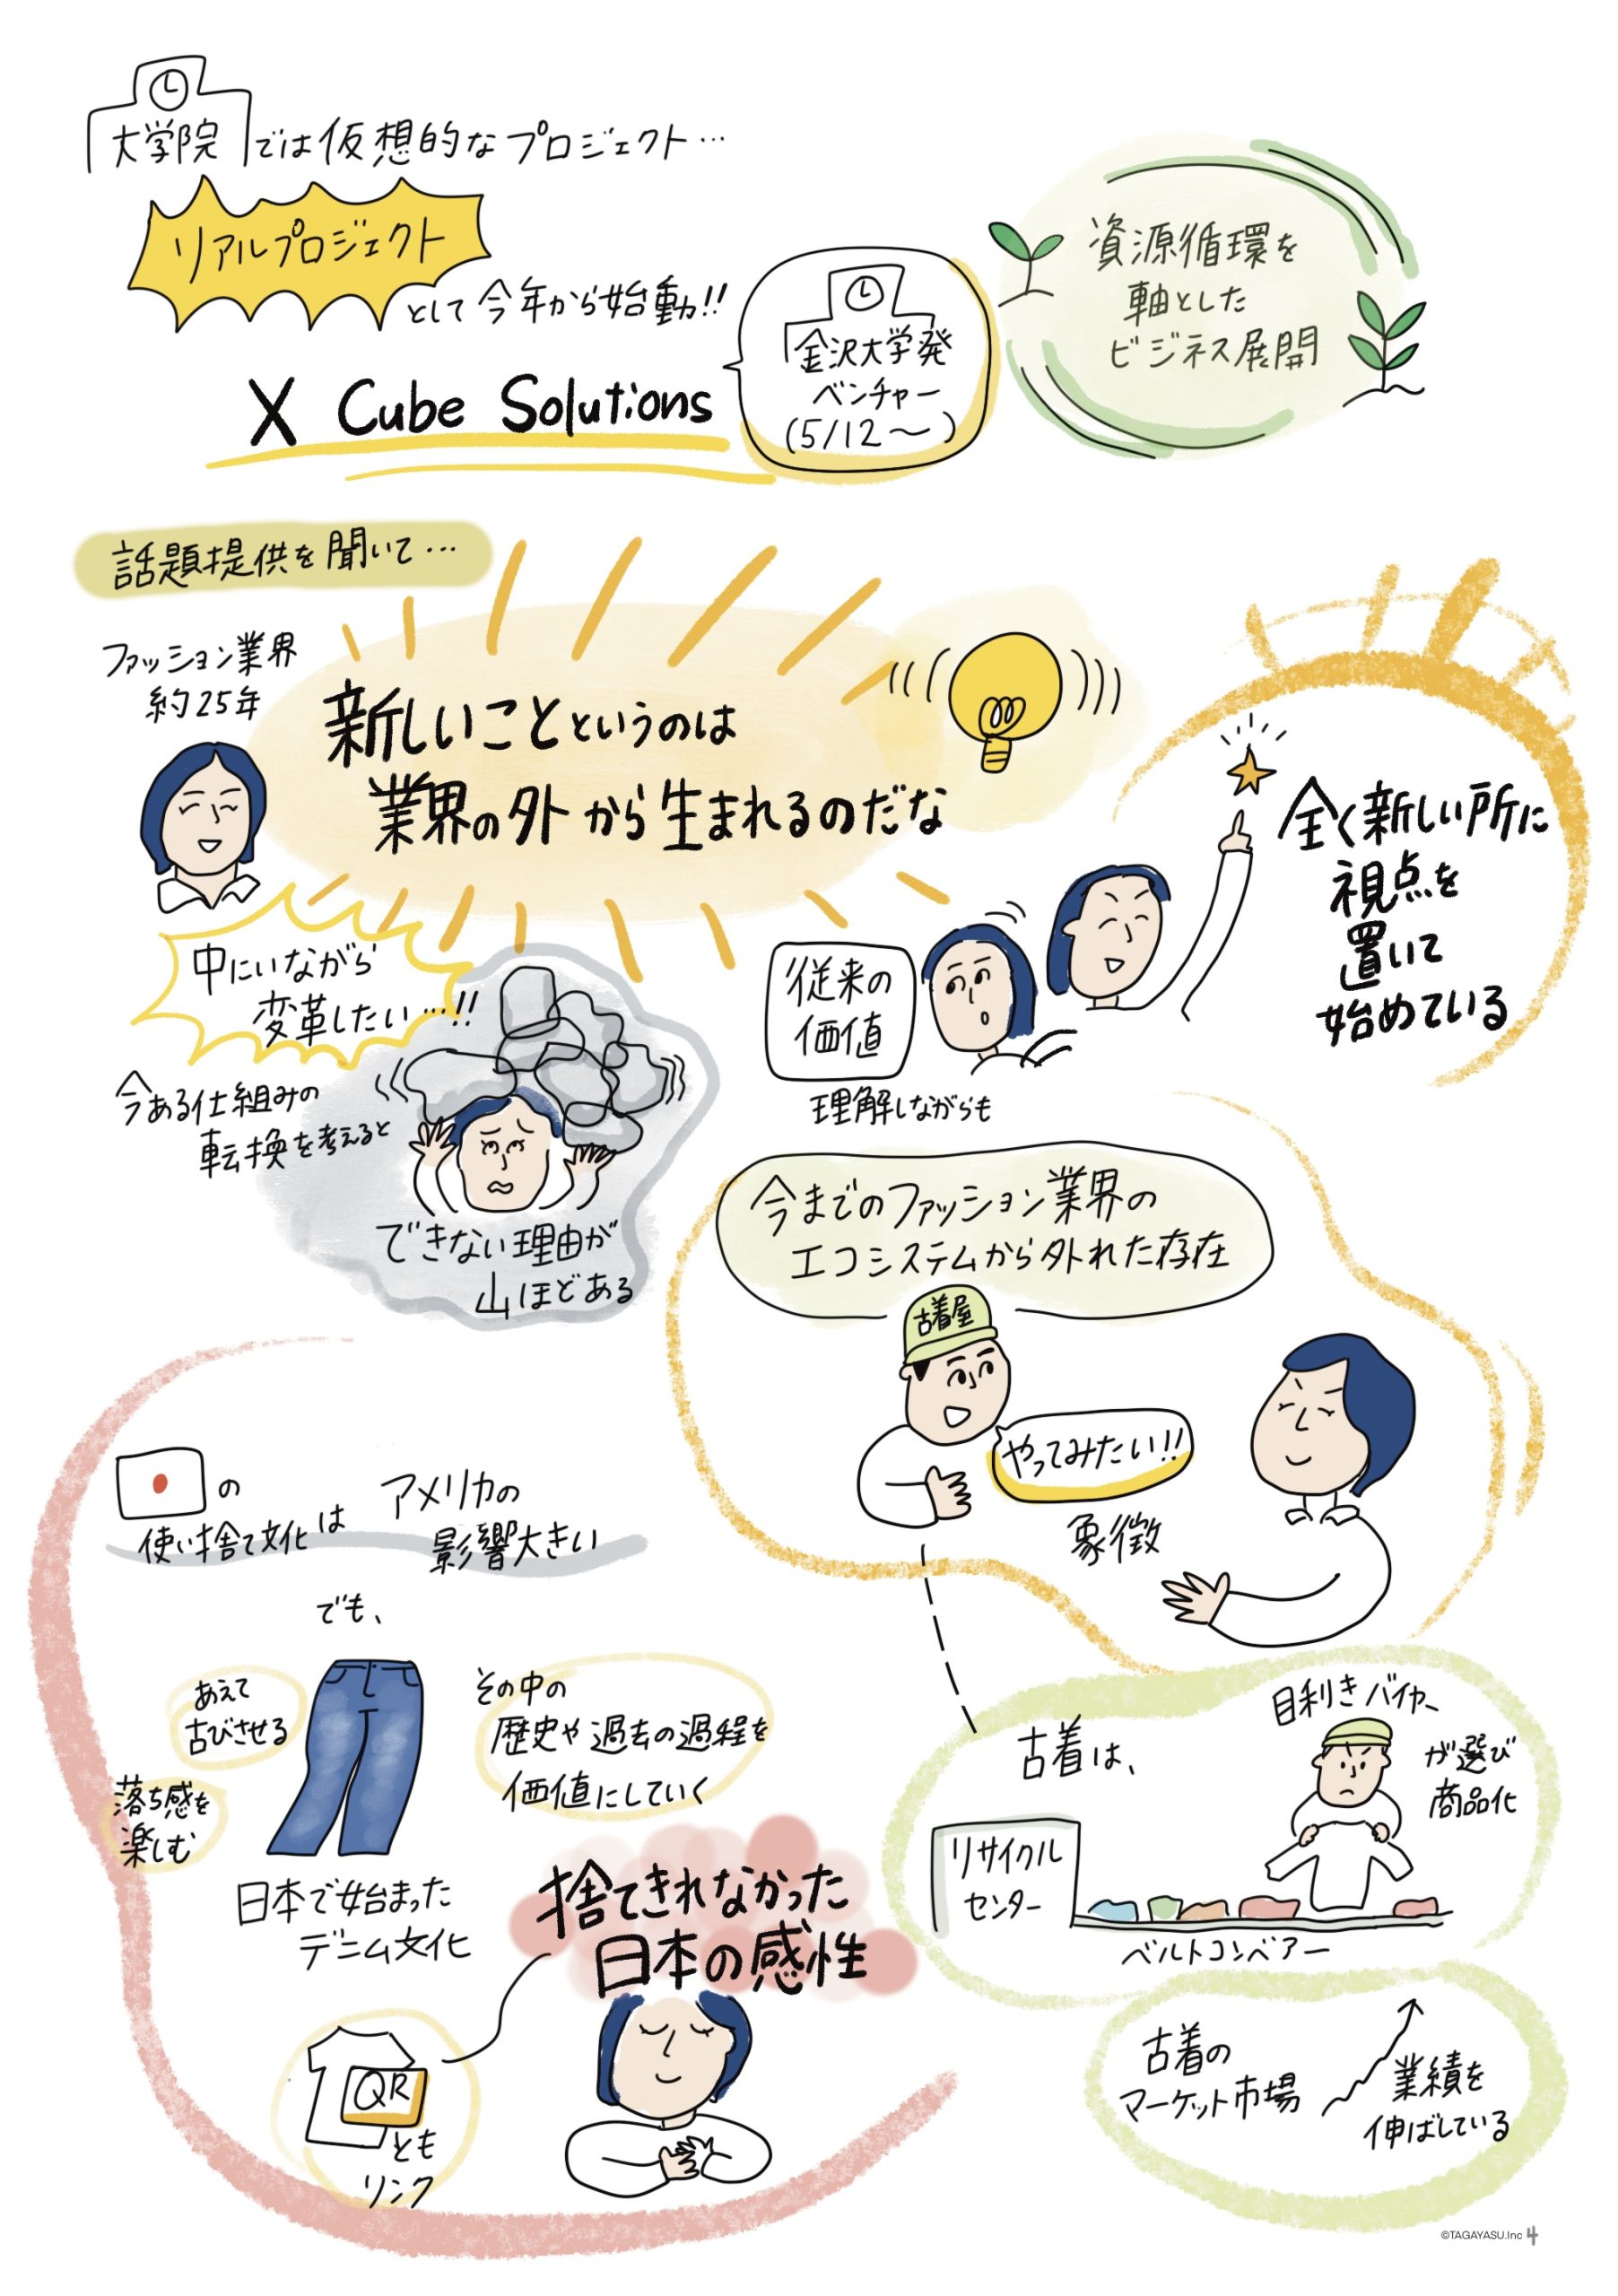 大学院では仮想的なプロジェクト…
リアルプロジェクト
として今年から始動!!
X Cube Solutions
金沢大学発
ベンチャー
(5/12〜)
資源循環を
軸とした
ビジネス展開
話題提供を聞いて…
ファッション業界
約25年
新しいことというのは
業界の外から生まれるのだな
中にいながら
変革したい…!!
今ある仕組みの
転換を考えると
できない理由が
山ほどある
従来の
価値
理解しながらも
全く新しい所に
視点を
置いて
始めている
今までのファッション業界の
エコシステムから外れた存在
古着屋
やってみたい!!
象徴
の
使い捨て文化は
アメリカの
影響大きい
でも、
あえて
古びさせる
落ち感を
楽しむ
その中の
歴史や過去の過程を
価値にしていく
日本で始まった
デニム文化
捨てきれなかった
日本の感性
QR
とも
リンク
古着は、
目利きバイヤー
が選び
商品化
リサイクル
センター
ベルトコンベアー
古着の
マーケット市場
業績を
伸ばしている
©TAGAYASU.Inc 4